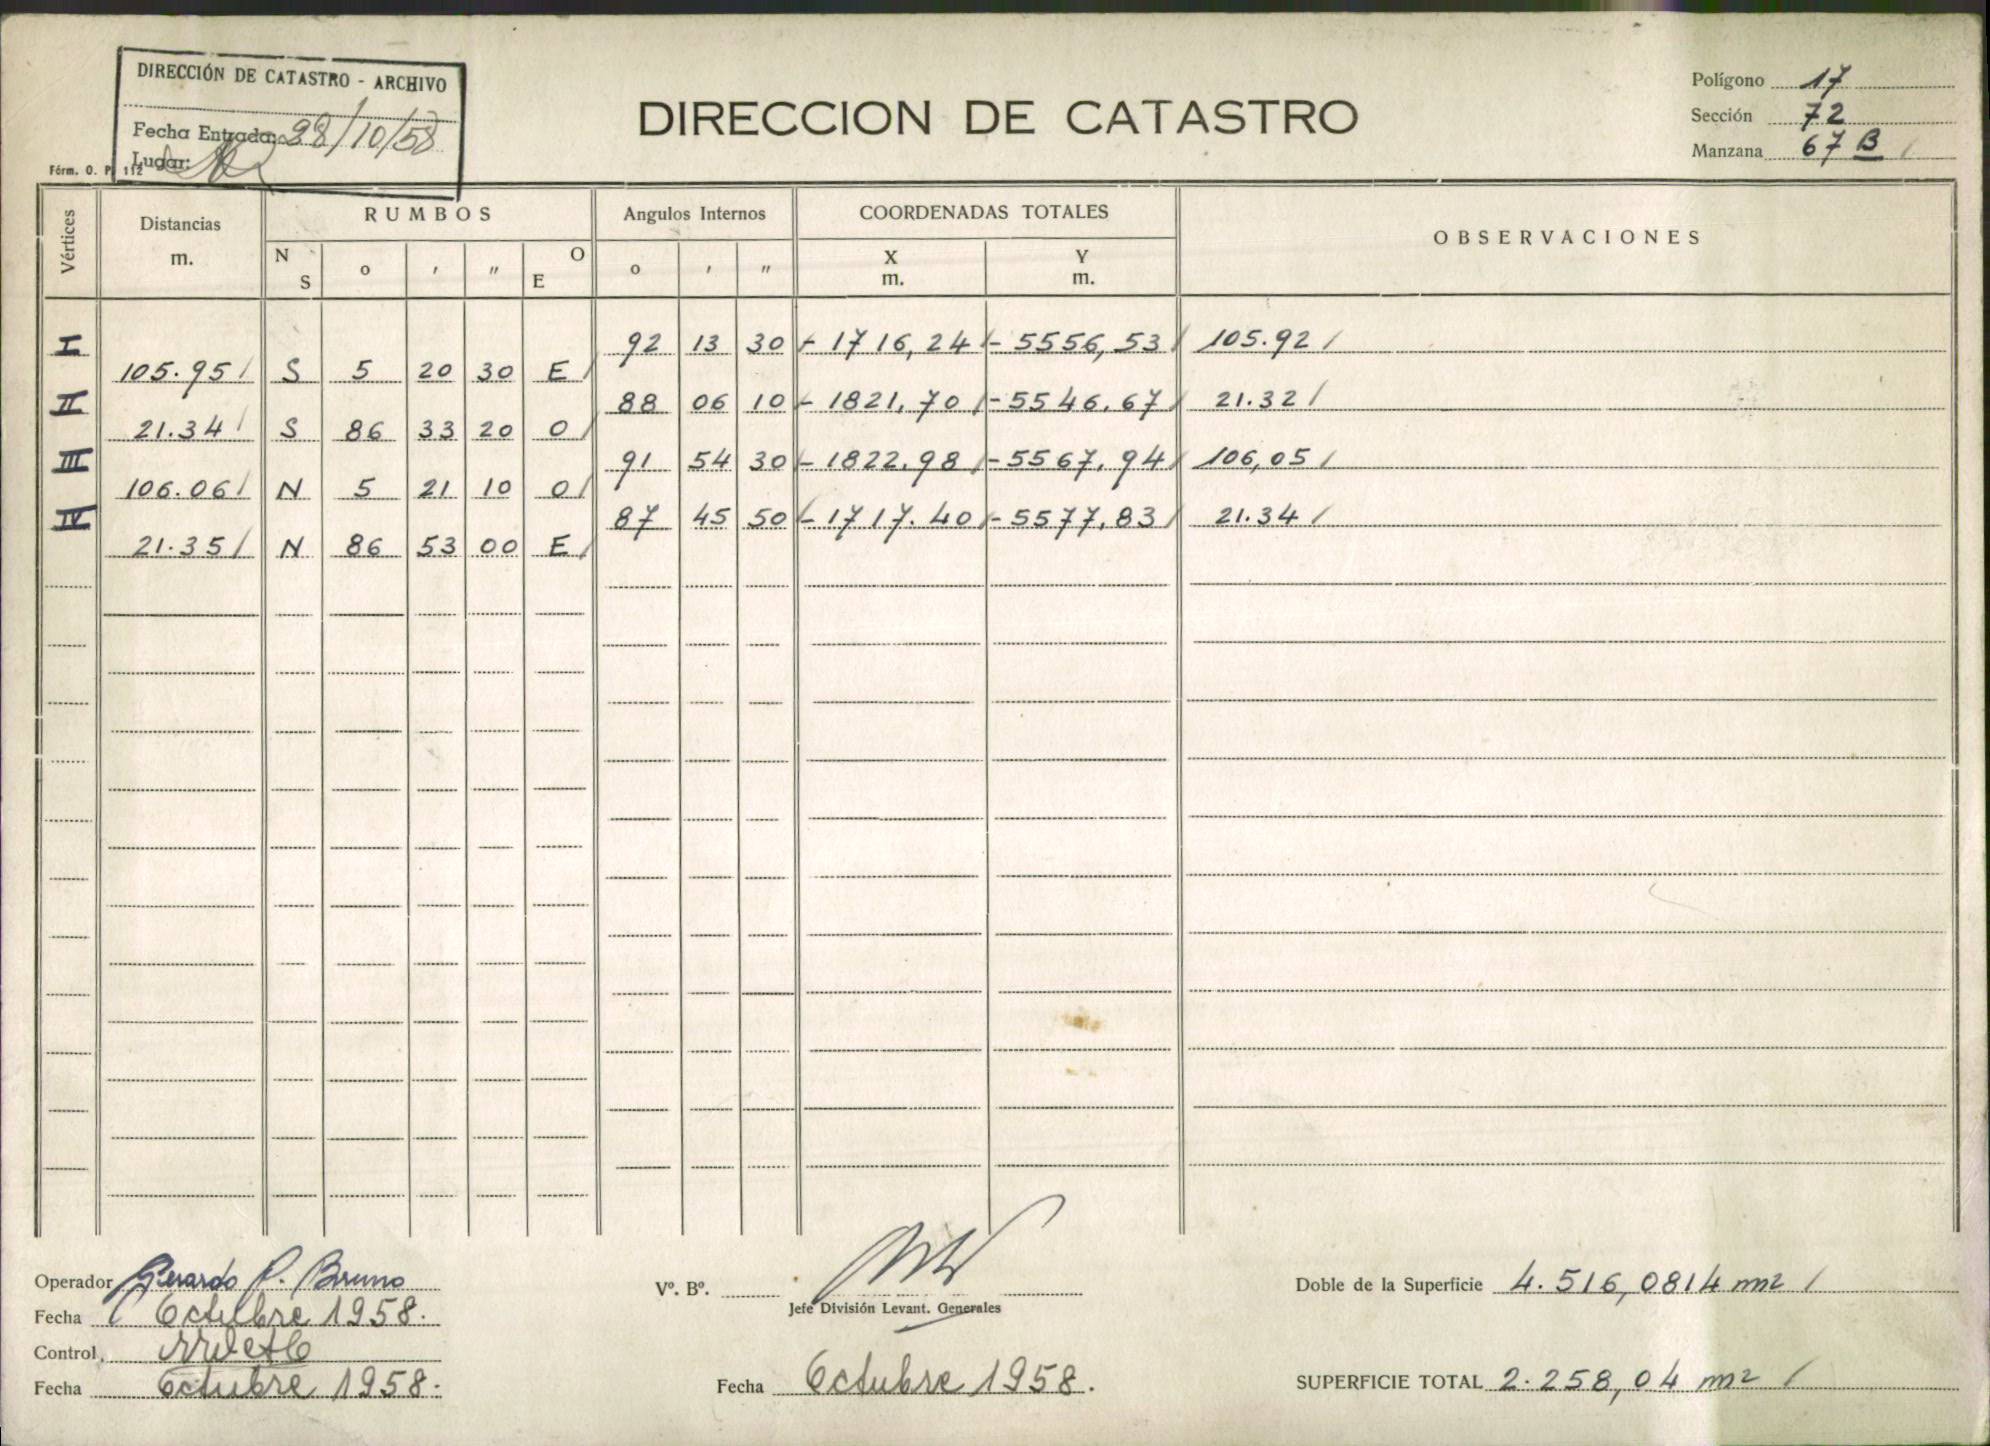 DIRECCIÓN DE CATASTRO - ARCHIVO
Fecha Entrada: 28/10/58
Lugar:
Fórm. O. P. 112
DIRECCION DE CATASTRO
Polígono 17
Sección 72
Manzana 67 B /
Vértices Distancias m. RUMBOS Angulos Internos COORDENADAS TOTALES OBSERVACIONES
N S o ' " O E o ' " X m. Y m.
I 92 13 30 - 1716,24 / - 5556,53 / 105.92 /
105.95 / S 5 20 30 E /
II 88 06 10 - 1821,70 / - 5546.67 / 21.32 /
21.34 / S 86 33 20 O /
III 91 54 30 - 1822.98 / - 5567.94 / 106,05 /
106.06 / N 5 21 10 O /
IV 87 45 50 - 1717.40 / - 5577,83 / 21.34 /
21.35 / N 86 53 00 E /
Operador Gerardo P. Bruno
Fecha Octubre 1958.
Control
Fecha Octubre 1958.
Vº. Bº.
Jefe División Levant. Generales
Fecha Octubre 1958.
Doble de la Superficie 4.516,0814 m2 /
SUPERFICIE TOTAL 2.258,04 m2 /